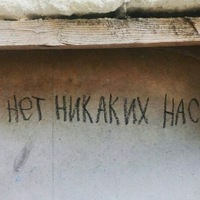 нет никаких нас